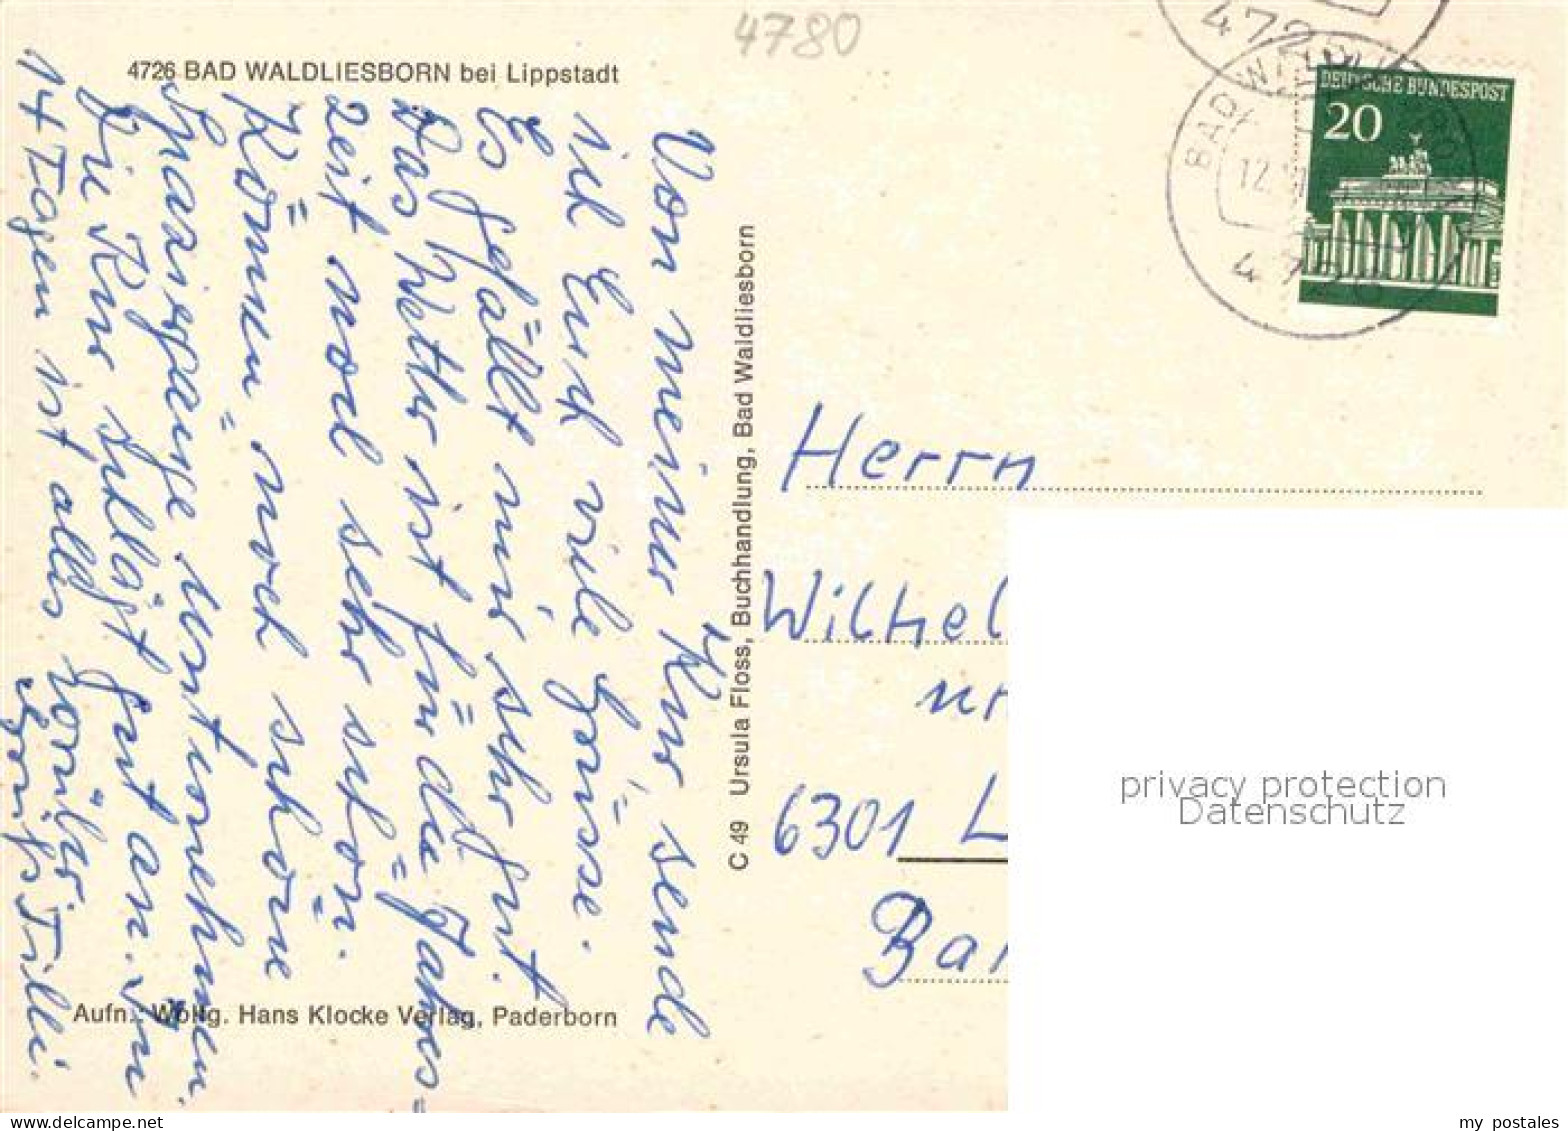 4780
4726 BAD WALDLIESBORN bei Lippstadt
Von meiner Kur, sende
ich Euch viele Grüsse.
Es gefällt mir sehr gut.
Das Wetter ist für die Jahres=
zeit noch sehr schön.
Können noch schöne
Spaziergänge unternehmen.
Die Kur schlägt gut an. In
14 Tagen ist alles vorüber
Tilli.
C 49 Ursula Floss, Buchhandlung, Bad Waldliesborn
Aufn.: Wolfg. Hans Klocke Verlag, Paderborn
472
BAD WALDLIESBORN
12.
DEUTSCHE BUNDESPOST
20
Herrn
Wilhel
6301 L
privacy protection
Datenschutz
my postales